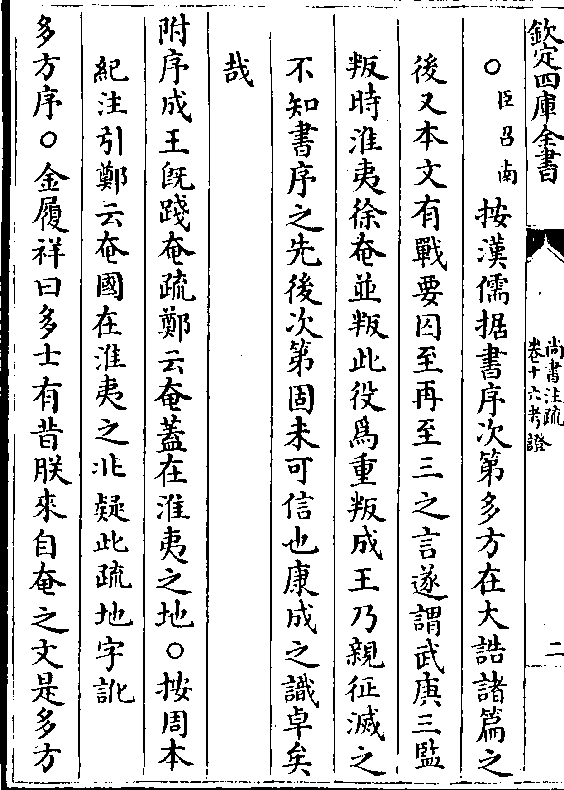 欽定四庫全書
尚書注疏
卷十六考證
二
○臣召南按漢儒据書序次第多方在大誥諸篇之
後又本文有戰要囚至再至三之言遂謂武庚三監
叛時淮夷徐奄並叛此役爲重叛成王乃親征滅之
不知書序之先後次第固未可信也康成之識卓矣
哉
附序成王旣踐奄疏鄭云奄蓋在淮夷之地○按周本
紀注引鄭云奄國在淮夷之北疑此疏地字訛
多方序○金履祥曰多士有昔朕來自奄之文是多方